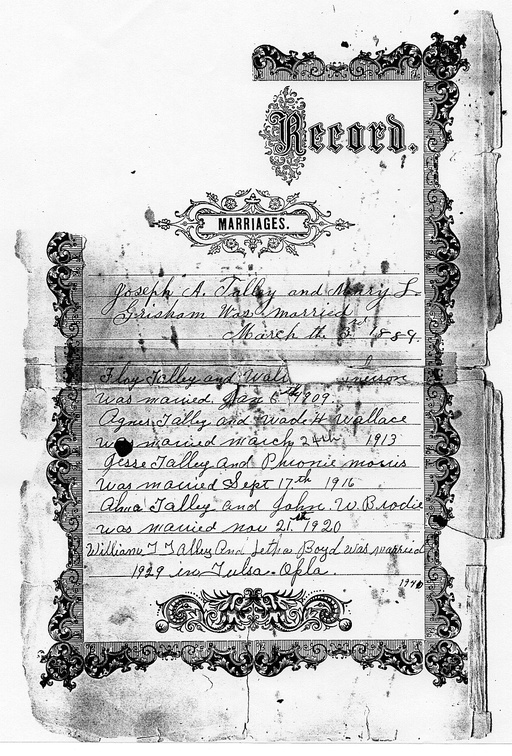 Record.
MARRIAGES.
Joseph A. Talley and Mary L.
Grisham Was married
March th. 3rd 1889.
Floy Talley and Walt
was married Jan 6th 1909.
Agnes Talley and Wade H Wallace
was married march 24th 1913
Jesse Talley and Pheonie morris
Was married Sept 17th 1916
Alma Talley and John. W Brodie
was married nov 21st 1920
William T Talley And Letha Boyd was married
1929 in Tulsa. Opla.
1940